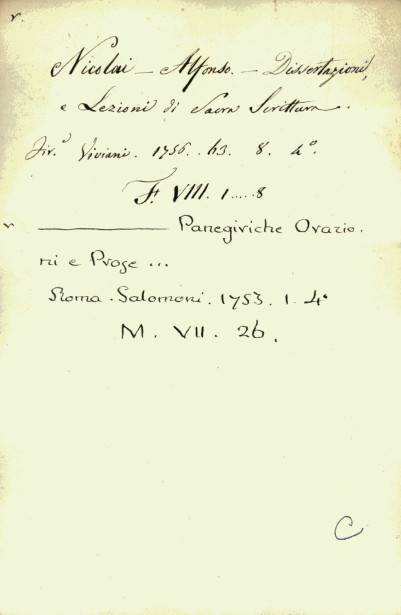 v.
Nicolai — Alfonso. — Dissertazioni,
e Lezioni di Sacra Scrittura.
Fir.e Viviani. 1756. 63. 8. 4º.
F. VIII. 1.....8
v ———— Panegiriche Orazio.
ni e Proge ...
Roma. Salomoni. 1753. 1. 4º
M. VII. 26.
C